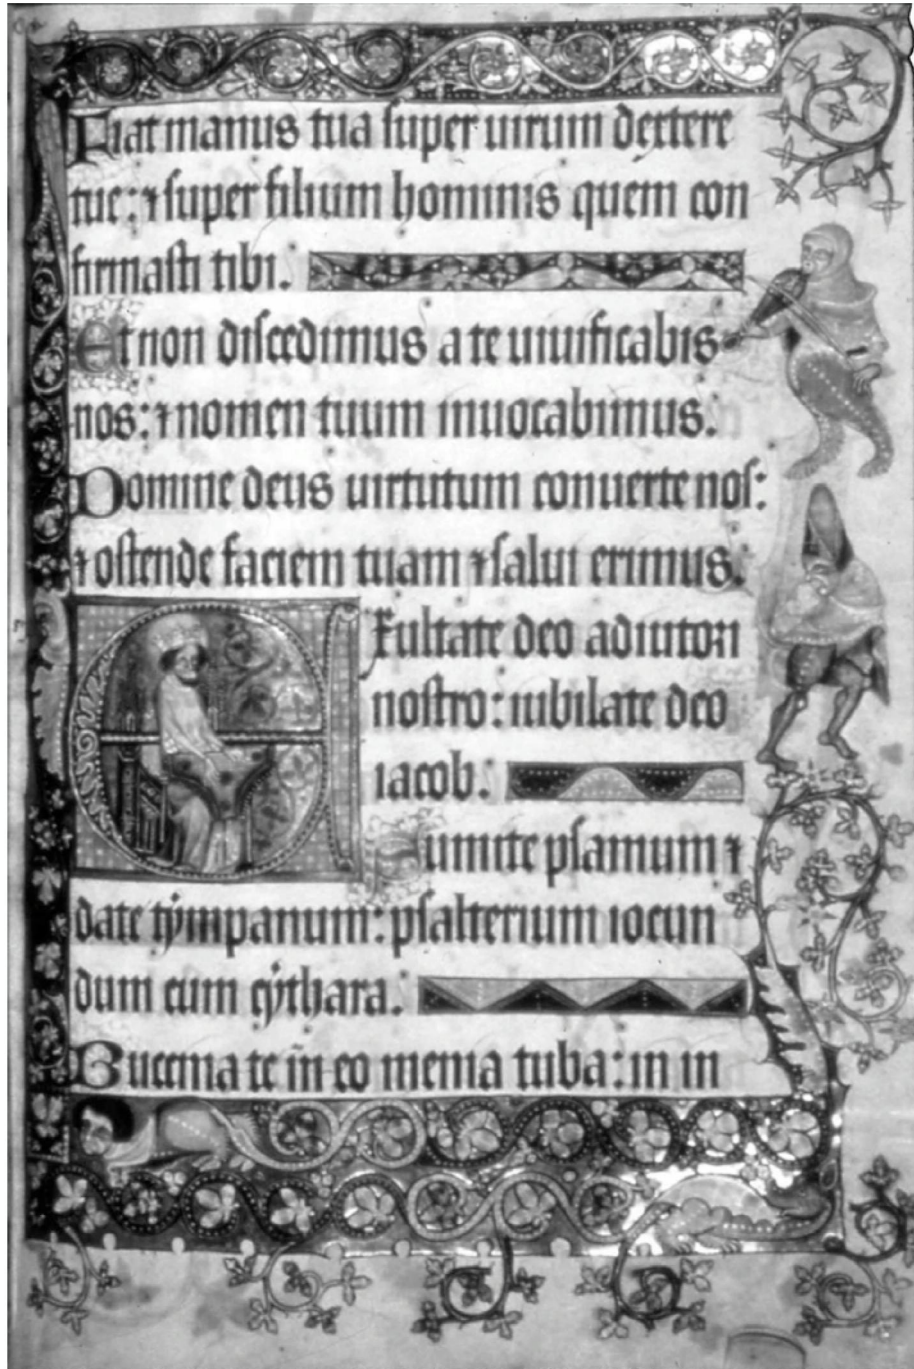 Fiat manus tua super uirum dextere
tue: ⁊ super filium hominis quem con
firmasti tibi.
Et non discedimus a te uiuificabis
nos: ⁊ nomen tuum inuocabimus.
Domine deus uirtutum conuerte nos:
⁊ ostende faciem tuam ⁊ salui erimus.
Exultate deo adiutori
nostro: iubilate deo
iacob.
Sumite psamum ⁊
date tympanum: psalterium iocun
dum cum cythara.
Buccinate in eo menia tuba: in in